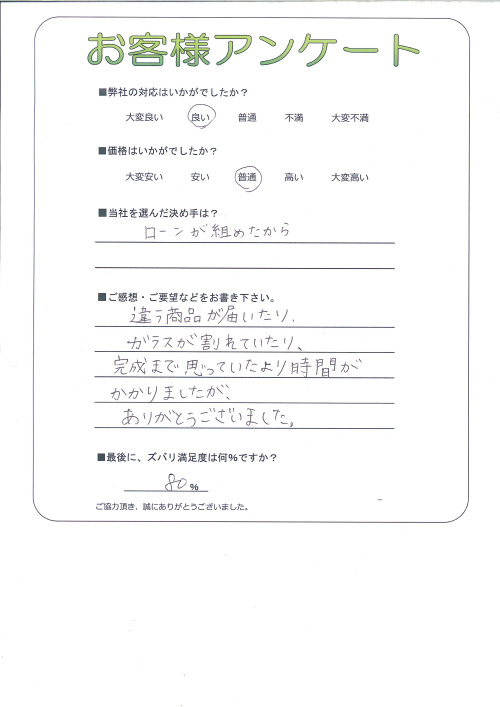 お客様アンケート
■弊社の対応はいかがでしたか？
大変良い 良い 普通 不満 大変不満
■価格はいかがでしたか？
大変安い 安い 普通 高い 大変高い
■当社を選んだ決め手は？
ローンが組めたから
■ご感想・ご要望などをお書き下さい。
違う商品が届いたり、
ガラスが割れていたり、
完成まで思っていたより時間が
かかりましたが、
ありがとうございました。
■最後に、ズバリ満足度は何％ですか？
80％
ご協力頂き、誠にありがとうございました。